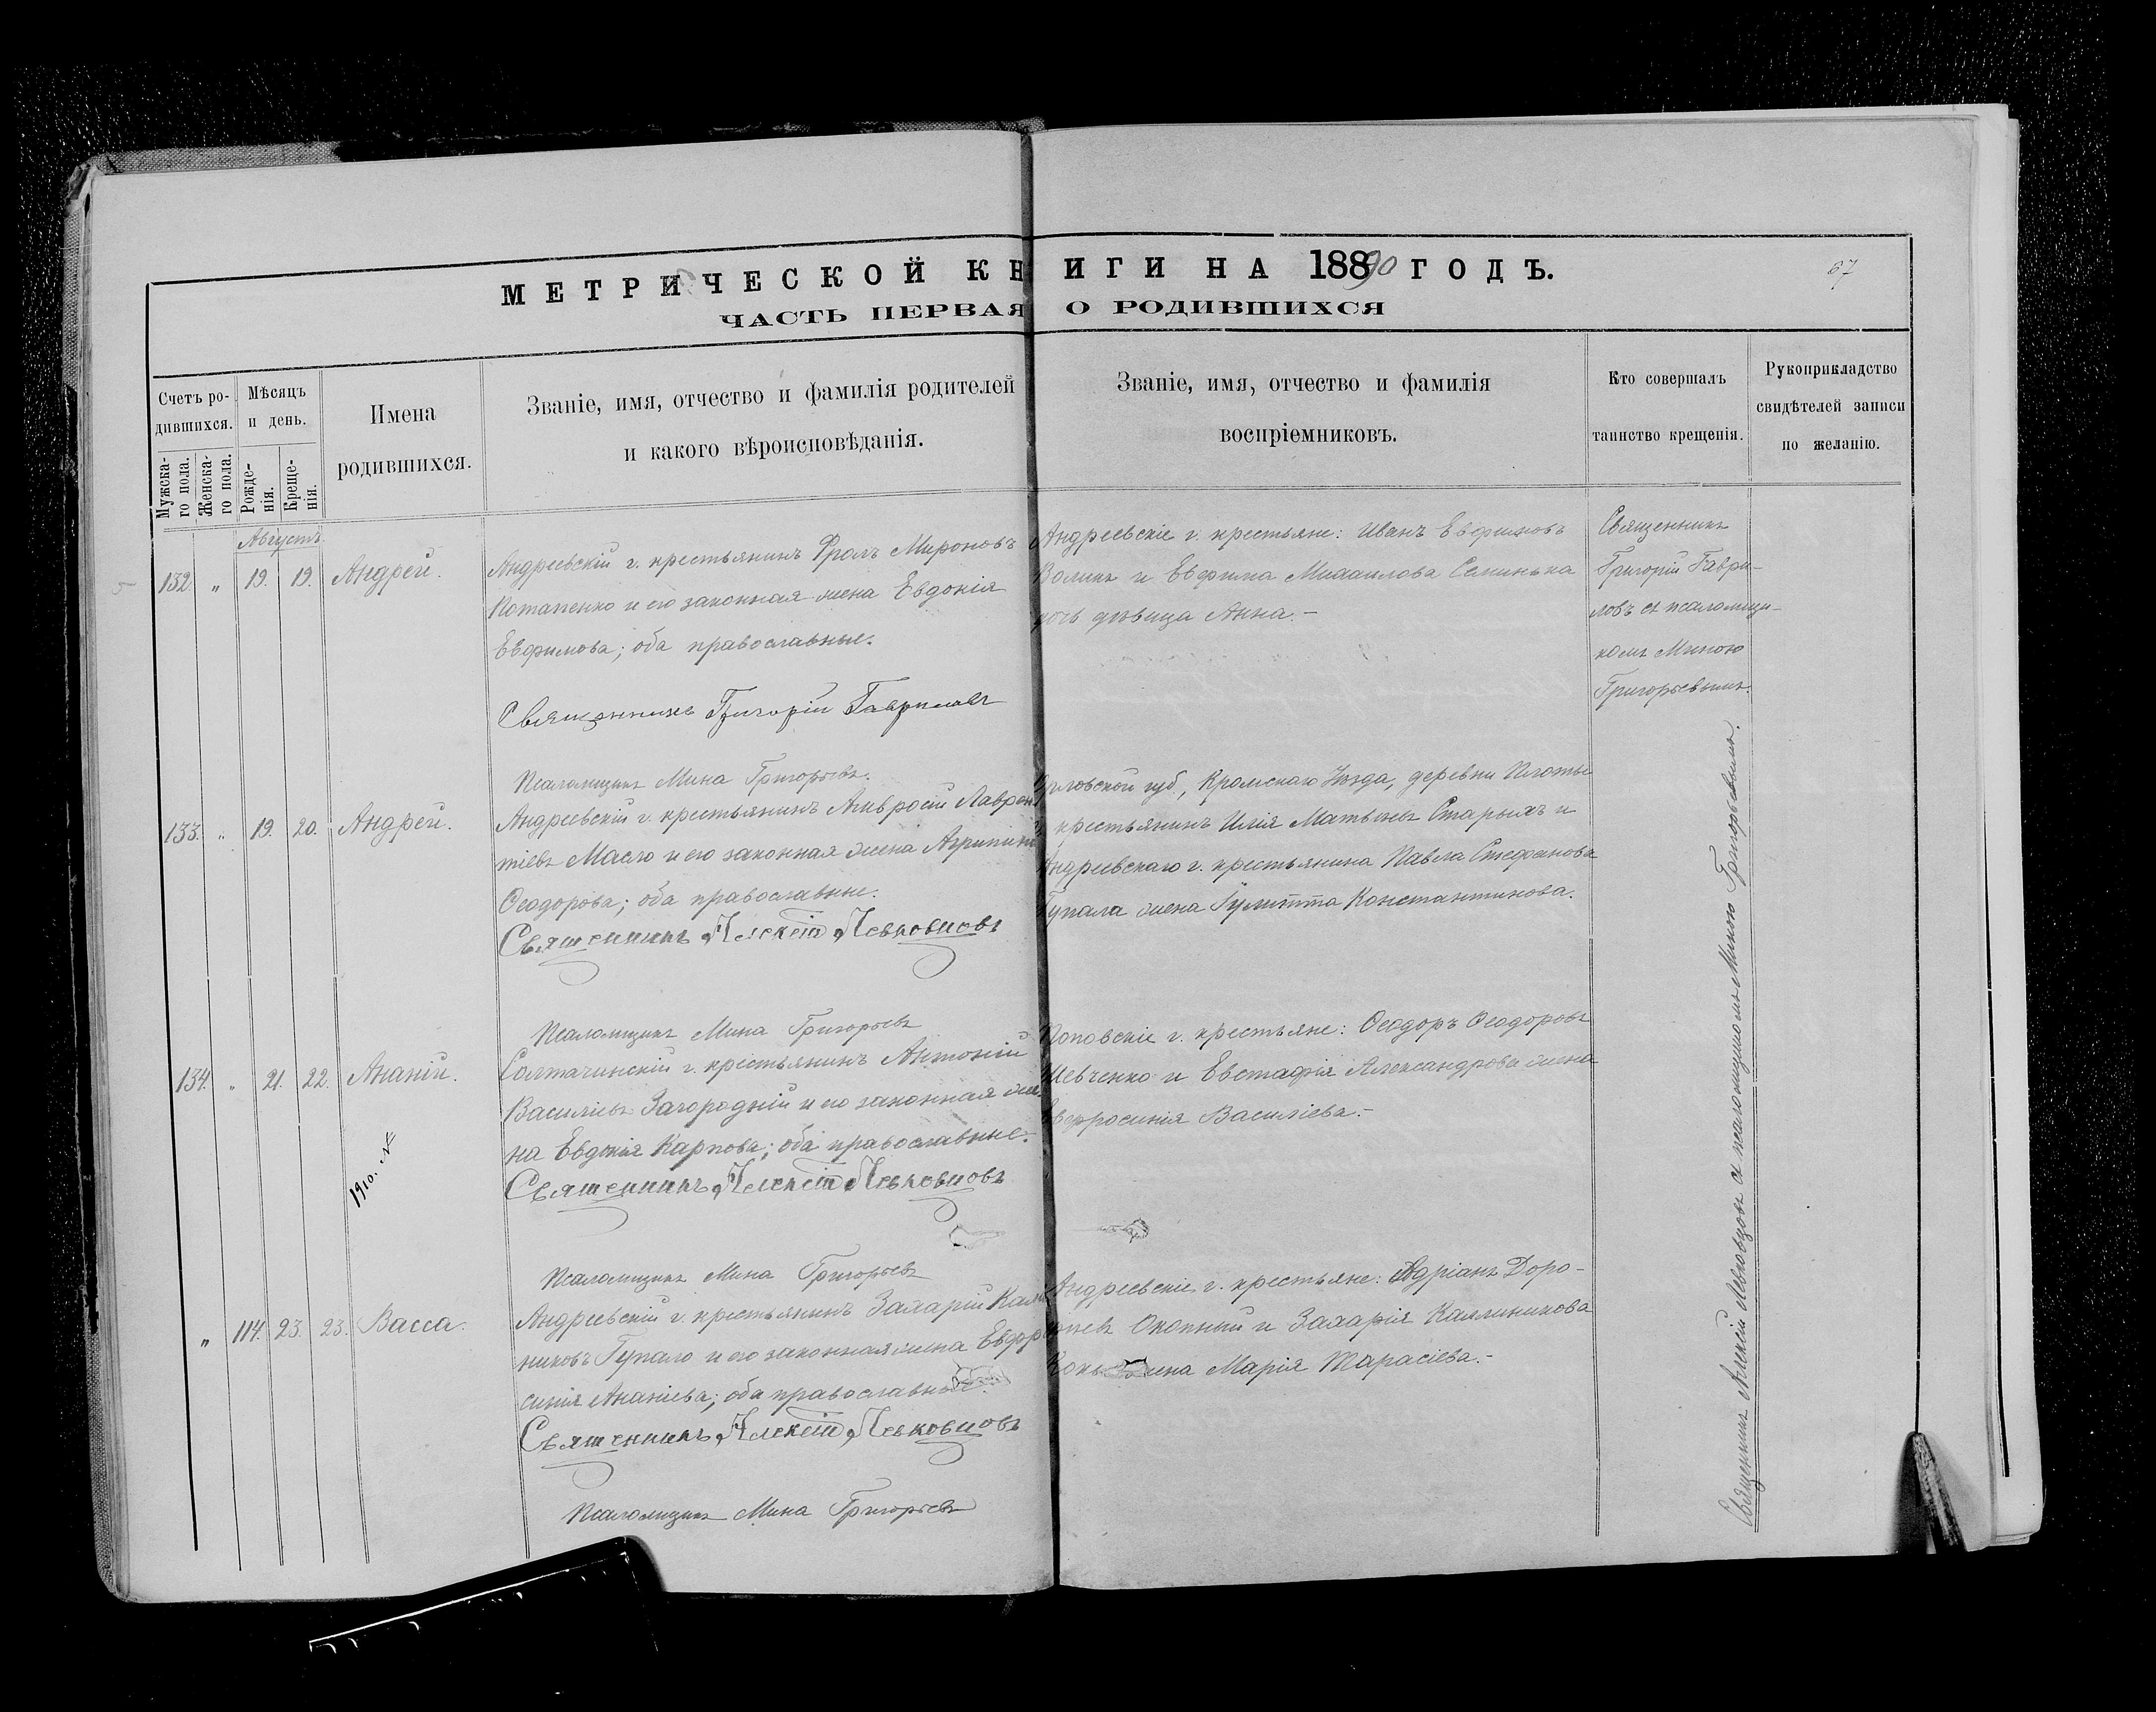 МЕТРИЧЕСКОЙ КНИГИ НА 1890 ГОДЪ.
67
ЧАСТЬ ПЕРВАЯ О РОДИВШИХСЯ
Счетъ родившихся.
Мужскаго пола.
Женскаго пола.
Мѣсяцъ и день.
Рожденія.
Крещенія.
Имена
родившихся.
Званіе, имя, отчество и фамилія родителей
и какого вѣроисповѣданія.
Званіе, имя, отчество и фамилія
воспріемниковъ.
Кто совершалъ
таинство крещенія.
Рукоприкладство
свидѣтелей записи
по желанію.
Августъ.
132 " 19. 19. Андрей.
Андреевскій г. крестьянинъ Фролъ Мироновъ
Потапенко и его законная жена Евдокія
Евфимова; оба православные.
Священникъ Григорій Гавриловъ
Псаломщикъ Мина Григорьевъ.
Андреевскіе г. крестьяне: Иванъ Евфимовъ
Воликъ и Евфима Михаилова Семинька
дочь дѣвица Анна.-
Священникъ
Григорій Гаври-
ловъ съ псаломщи-
комъ Миною
Григорьевымъ.
133. " 19. 20. Андрей.
Андреевскій г. крестьянинъ Амвросій Лаврен
тіевъ Масло и его законная жена Агрипина
Ѳеодорова; оба православные.
Священникъ Алексій Левковцовъ
Псаломщикъ Мина Григорьевъ
Орловской губ., Кромскаго Уѣзда, деревни Плоты
крестьянинъ Илія Матвѣевъ Старыхъ и
Андреевскаго г. крестьянина Павла Стефанова
Гупала жена Іулитта Константинова.
134. " 21. 22. Ананій.
1910. №
Солтачинскій г. крестьянинъ Антоній
Василіевъ Загородній и его законная же-
на Евдокія Карпова; оба православные.
Священникъ Алексій Левковцовъ
Псаломщикъ Мина Григорьевъ
Поповскіе г. крестьяне: Ѳеодоръ Ѳеодоровъ
Шевченко и Евстафія Александрова жена
Евфросинія Василіева.-
" 114. 23. 23. Васса.
Андреевскій г. крестьянинъ Захарій Калли
никовъ Гупало и его законная жена Евфро
синія Ананіева; оба православные.
Священникъ Алексій Левковцовъ
Псаломщикъ Мина Григорьевъ
Андреевскіе г. крестьяне: Адріанъ Доро-
Окопный и Захарія Каллиникова
жена Марія Тарасіева.-
Священникъ Алексій Левковцовъ съ псаломщикомъ Миною Григорьевымъ.